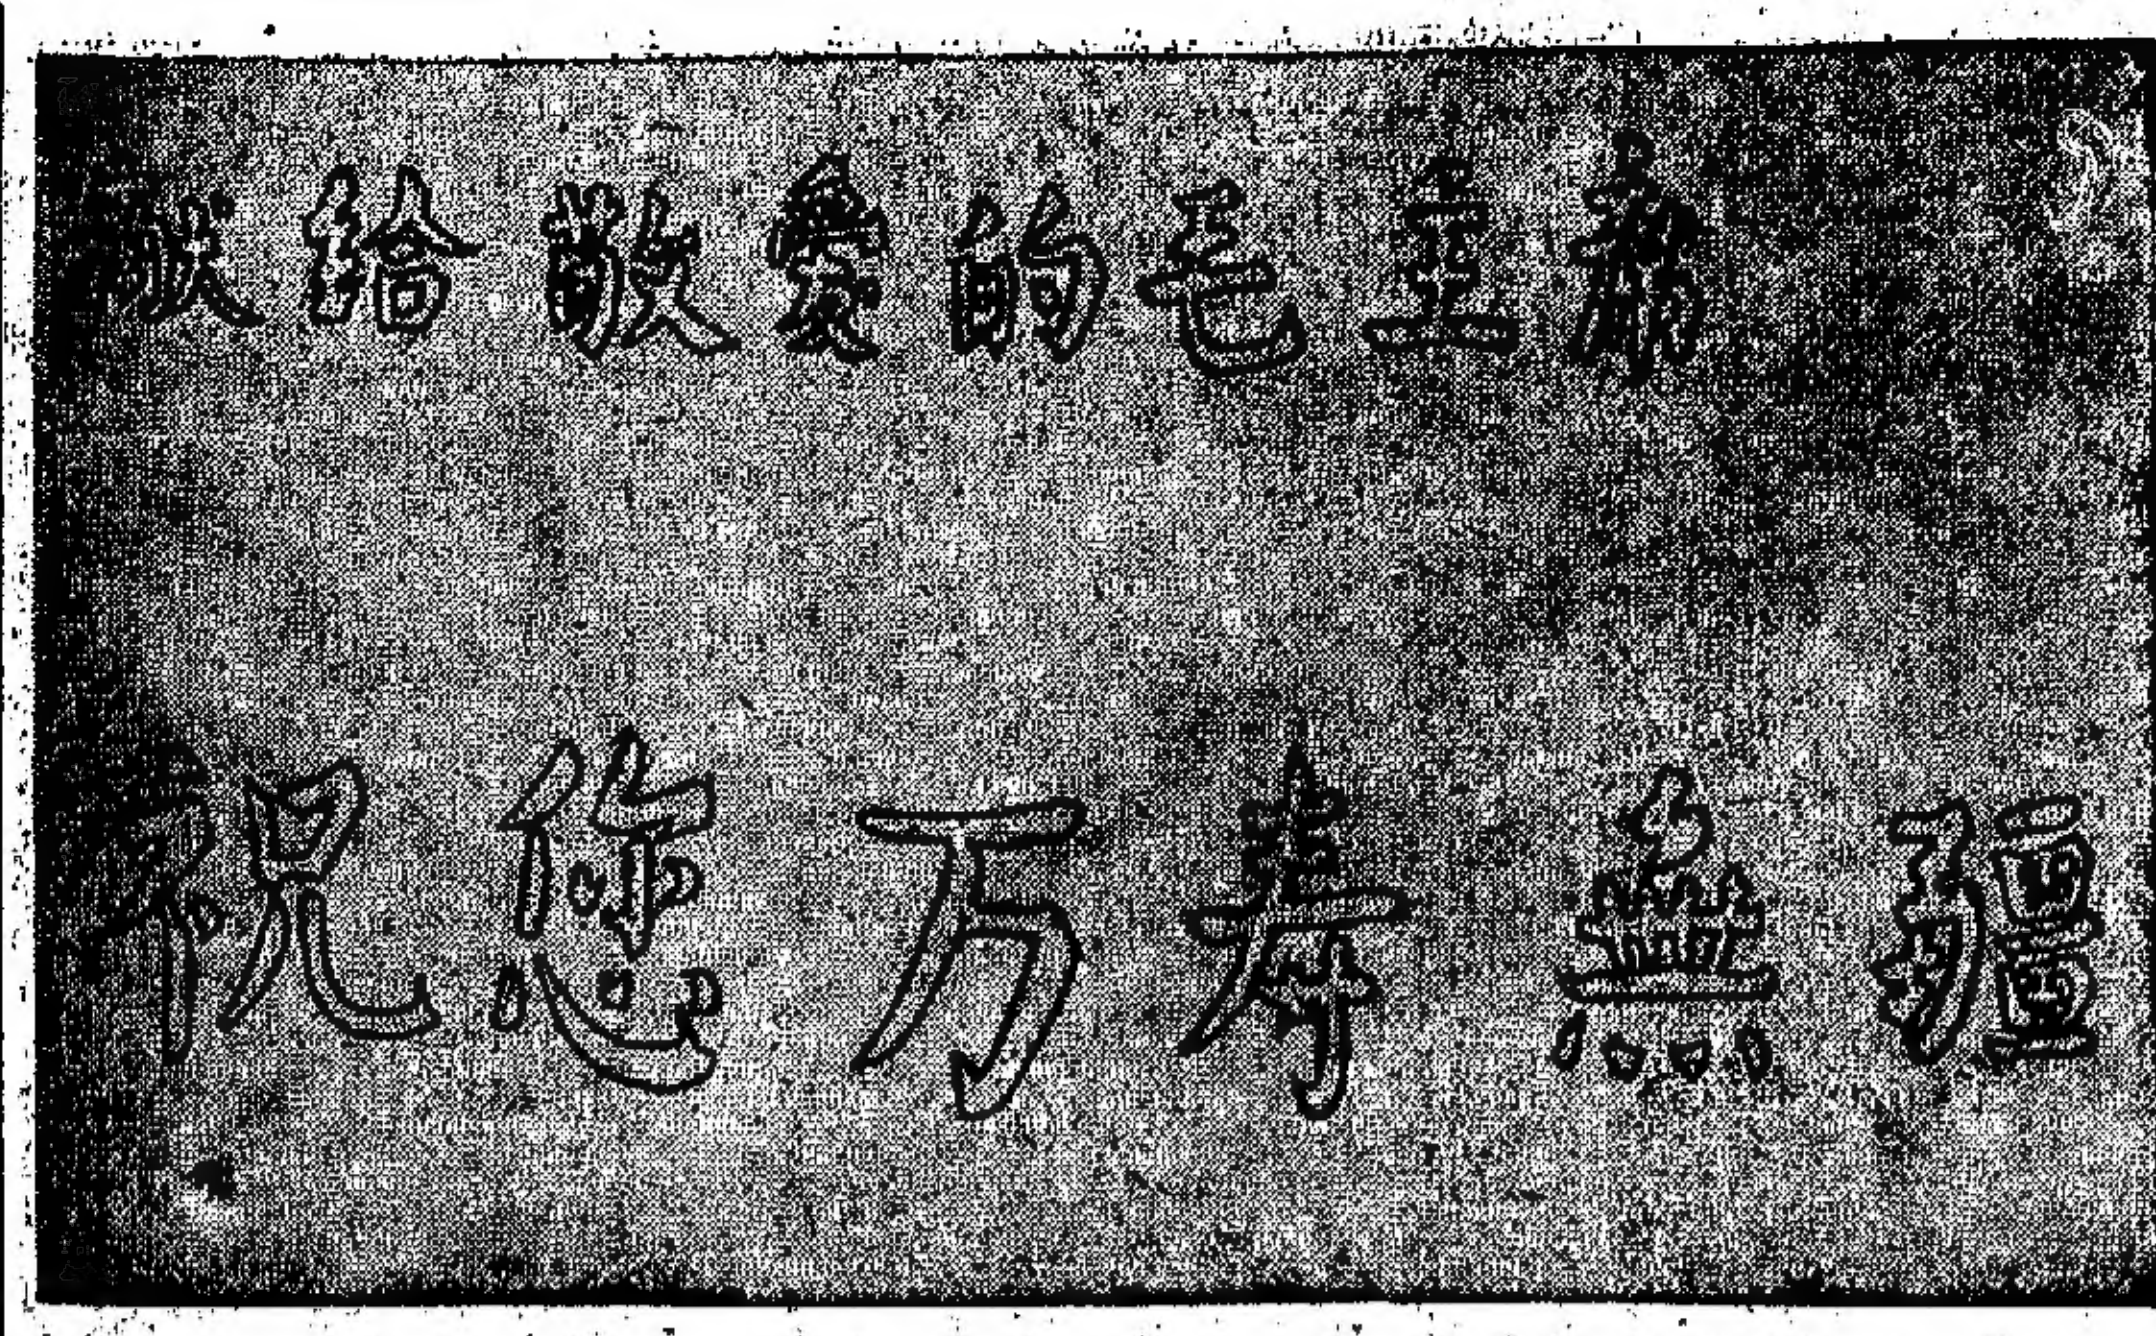 献給敬愛的毛主席
祝您万寿無疆